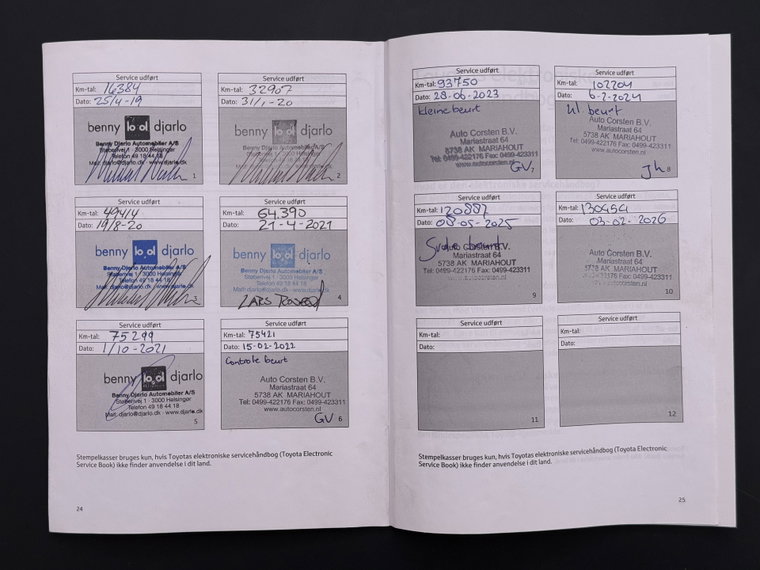 Service udført
Km-tal: 16384
Dato: 25/4-19
benny lool djarlo
Benny Djarlo Automobiler A/S
Støberivej 1 · 3000 Helsingør
Telefon 49 18 44 18
Mail: djarlo@djarlo.dk · www.djarlo.dk
1
Service udført
Km-tal: 32907
Dato: 31/1-20
benny lool djarlo
Benny Djarlo Automobiler A/S
Støberivej 1 · 3000 Helsingør
Telefon 49 18 44 18
Mail: djarlo@djarlo.dk · www.djarlo.dk
2
Service udført
Km-tal: 49414
Dato: 19/8-20
benny lool djarlo
Benny Djarlo Automobiler A/S
Støberivej 1 · 3000 Helsingør
Telefon 49 18 44 18
Mail: djarlo@djarlo.dk · www.djarlo.dk
3
Service udført
Km-tal: 64.390
Dato: 21-4-2021
benny lool djarlo
Benny Djarlo Automobiler A/S
Støberivej 1 · 3000 Helsingør
Telefon 49 18 44 18
Mail: djarlo@djarlo.dk · www.djarlo.dk
LARS
4
Service udført
Km-tal: 75299
Dato: 1/10-2021
benny lool djarlo
Benny Djarlo Automobiler A/S
Støberivej 1 · 3000 Helsingør
Telefon 49 18 44 18
Mail: djarlo@djarlo.dk · www.djarlo.dk
5
Service udført
Km-tal: 75421
Dato: 15-02-2022
Controle beurt
Auto Corsten B.V.
Mariastraat 64
5738 AK MARIAHOUT
Tel: 0499-422176 Fax: 0499-423311
www.autocorsten.nl
GV 6
Stempelkasser bruges kun, hvis Toyotas elektroniske servicehåndbog (Toyota Electronic
Service Book) ikke finder anvendelse i dit land.
24
Service udført
Km-tal: 93750
Dato: 28-06-2023
kleine beurt
Auto Corsten B.V.
Mariastraat 64
5738 AK MARIAHOUT
Tel: 0499-422176 Fax: 0499-423311
www.autocorsten.nl
GV 7
Service udført
Km-tal: 102204
Dato: 6-2-2024
kl. beurt
Auto Corsten B.V.
Mariastraat 64
5738 AK MARIAHOUT
Tel: 0499-422176 Fax: 0499-423311
www.autocorsten.nl
Jh 8
Service udført
Km-tal: 120887
Dato: 08-05-2025
beurt
Auto Corsten B.V.
Mariastraat 64
5738 AK MARIAHOUT
Tel: 0499-422176 Fax: 0499-423311
www.autocorsten.nl
9
Service udført
Km-tal: 130454
Dato: 03-02-2026
Auto Corsten B.V.
Mariastraat 64
5738 AK MARIAHOUT
Tel: 0499-422176 Fax: 0499-423311
www.autocorsten.nl
10
Service udført
Km-tal:
Dato:
11
Service udført
Km-tal:
Dato:
12
Stempelkasser bruges kun, hvis Toyotas elektroniske servicehåndbog (Toyota Electronic
Service Book) ikke finder anvendelse i dit land.
25